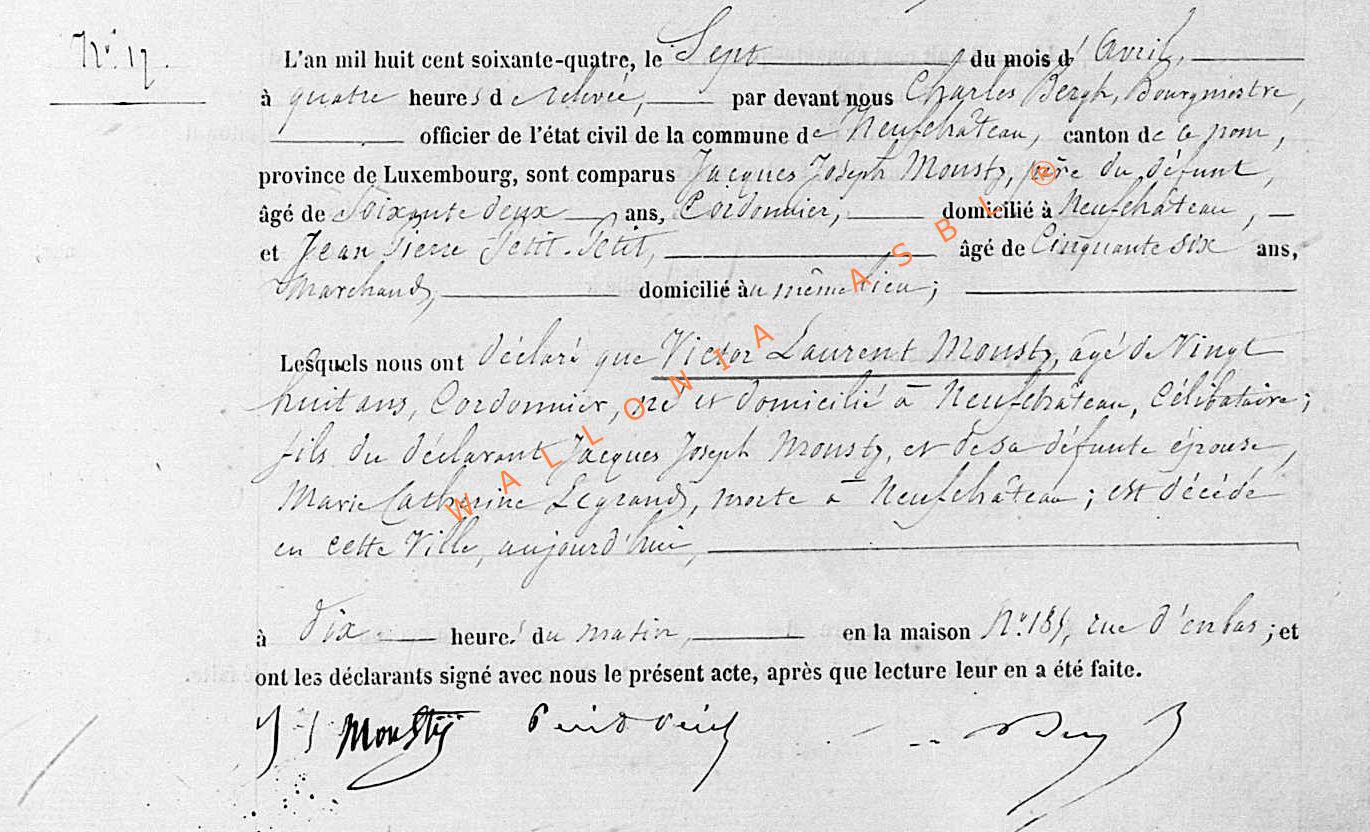 N° 17.
L'an mil huit cent soixante-quatre, le Sept du mois d'Avril,
à quatre heures de relevée, par devant nous Charles Bergh, Bourgmestre,
officier de l'état civil de la commune de Neufchâteau, canton de ce nom,
province de Luxembourg, sont comparus Jacques Joseph Mousty, père du défunt,
âgé de Soixante deux ans, Cordonnier, domicilié à Neufchâteau,
et Jean Pierre Petit-Petit, âgé de Cinquante six ans,
Marchand, domicilié au même lieu;
Lesquels nous ont déclaré que Victor Laurent Mousty, agé de Vingt
huit ans, Cordonnier, né et domicilié à Neufchâteau, Célibataire;
fils du déclarant Jacques Joseph Mousty, et de sa défunte épouse,
Marie Catherine Legrand, morte à Neufchâteau; est décédé
en cette Ville, aujourd'hui,
à dix heures du matin, en la maison N° 185, rue d'enbas; et
ont les déclarants signé avec nous le présent acte, après que lecture leur en a été faite.
J J Mousty Petit Petit
WALLONIA ASBL ®